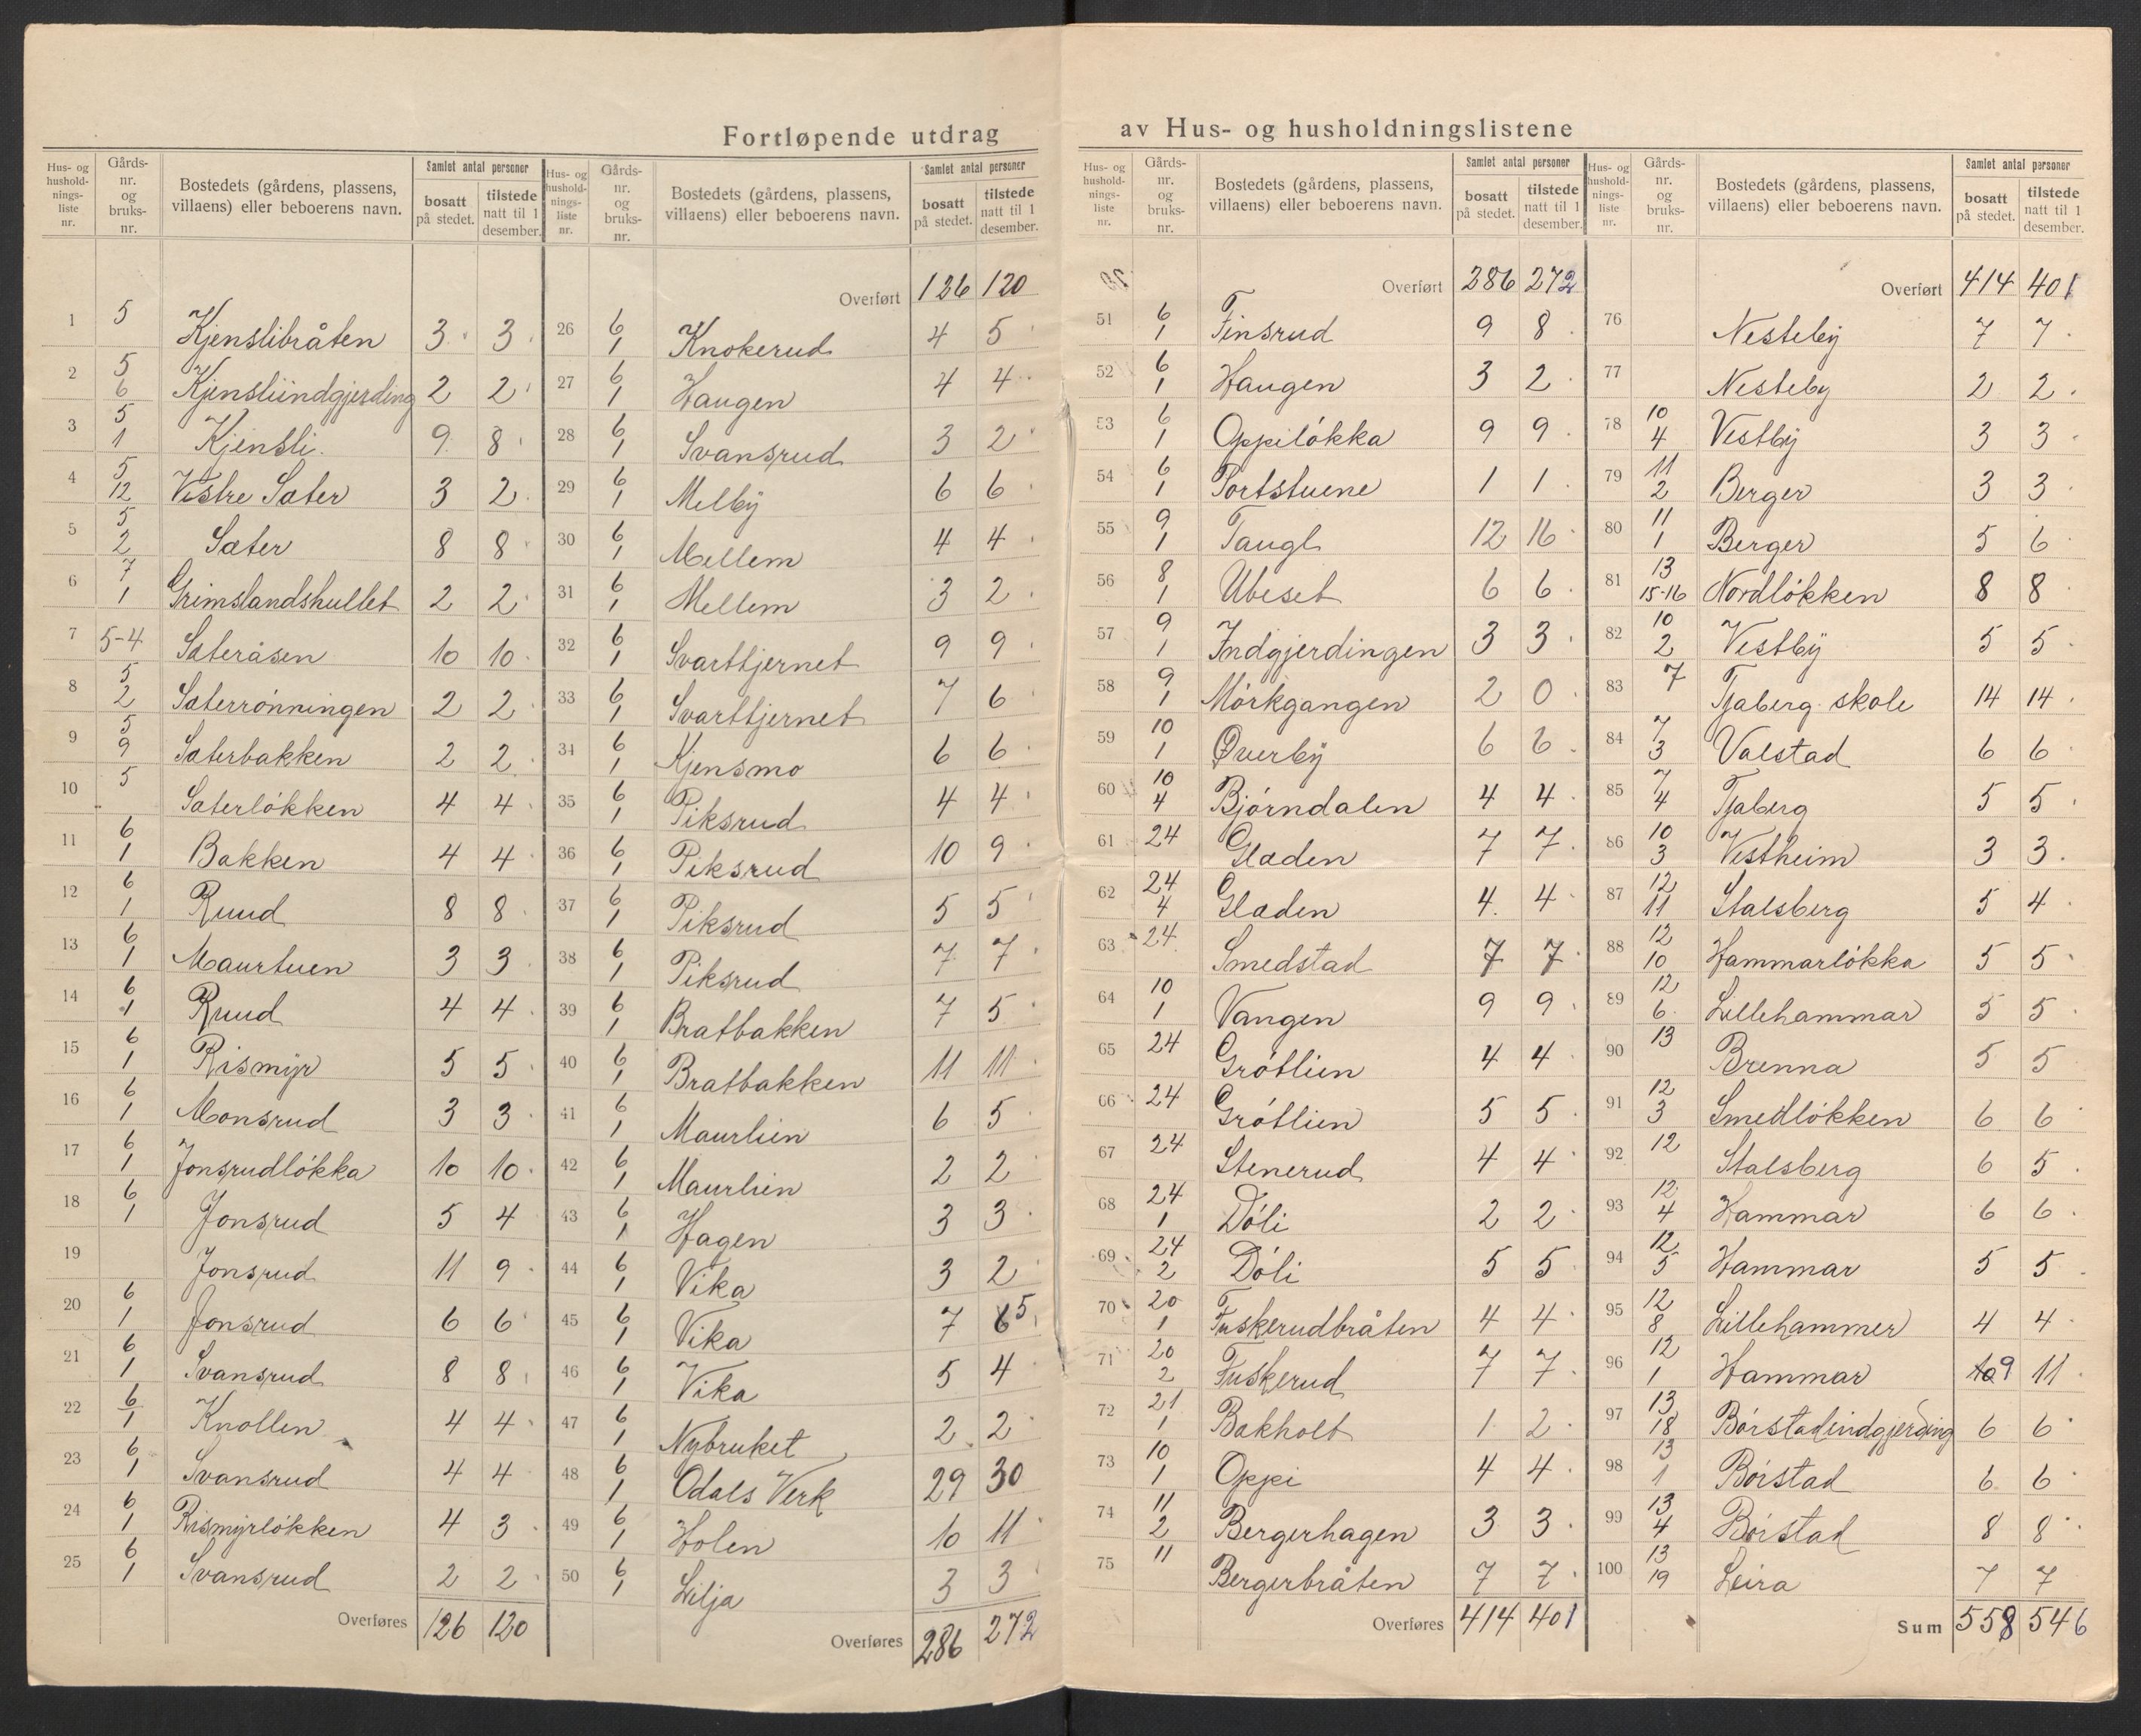 Fortløpende utdrag av Hus- og husholdningslistene
Hus- og hushold-nings-liste nr. | Gårds-nr. og bruks-nr. | Bostedets (gårdens, plassens, villaens) eller beboerens navn. | Samlet antal personer | bosatt på stedet. | tilstede natt til 1 desember.
1 | 5 | Kjenslibråten | 3 | 3
2 | 5 6 | Kjensliindgjerding | 2 | 2
3 | 5 1 | Kjensli | 9 | 8
4 | 5 12 | Vestre Sæter | 3 | 2
5 | 5 2 | Sæter | 8 | 8
6 | 7 1 | Grimslandshullet | 2 | 2
7 | 5-4 | Sæteråsen | 10 | 10
8 | 5 2 | Sæterrönningen | 2 | 2
9 | 5 9 | Sæterbakken | 2 | 2
10 | 5 | Sæterlökken | 4 | 4
11 | 6 1 | Bakken | 4 | 4
12 | 6 1 | Ruud | 8 | 8
13 | 6 1 | Maurtuen | 3 | 3
14 | 6 1 | Ruud | 4 | 4
15 | 6 1 | Rismyr | 5 | 5
16 | 6 1 | Monsrud | 3 | 3
17 | 6 1 | Jonsrudlökka | 10 | 10
18 | 6 1 | Jonsrud | 5 | 4
19 | Jonsrud | 11 | 9
20 | 6 1 | Jonsrud | 6 | 6
21 | 6 1 | Svansrud | 8 | 8
22 | 6 1 | Knollen | 4 | 4
23 | 6 1 | Svansrud | 4 | 4
24 | 6 1 | Rismyrlökken | 4 | 3
25 | 6 1 | Svansrud | 2 | 2
Overføres | 126 | 120
Hus- og hushold-nings-liste nr. | Gårds-nr. og bruks-nr. | Bostedets (gårdens, plassens, villaens) eller beboerens navn. | Samlet antal personer | bosatt på stedet. | tilstede natt til 1 desember.
Overført | 126 | 120
26 | 6 1 | Knokerud | 4 | 5
27 | 6 1 | Haugen | 4 | 4
28 | 6 1 | Svansrud | 3 | 2
29 | 6 1 | Melby | 6 | 6
30 | 6 1 | Mellem | 4 | 4
31 | 6 1 | Mellem | 3 | 2
32 | 6 1 | Svarttjernet | 9 | 9
33 | 6 1 | Svarttjernet | 7 | 6
34 | 6 1 | Kjensmo | 6 | 6
35 | 6 1 | Piksrud | 4 | 4
36 | 6 1 | Piksrud | 10 | 9
37 | 6 1 | Piksrud | 5 | 5
38 | 6 1 | Piksrud | 7 | 7
39 | 6 1 | Bratbakken | 7 | 5
40 | 6 1 | Bratbakken | 11 | 11
41 | 6 1 | Maurlien | 6 | 5
42 | 6 1 | Maurlien | 2 | 2
43 | 6 1 | Hagen | 3 | 3
44 | 6 1 | Vika | 3 | 2
45 | 6 1 | Vika | 7 | 5
46 | 6 1 | Vika | 5 | 4
47 | 6 1 | Nybruket | 2 | 2
48 | 6 1 | Odals Verk | 29 | 30
49 | 6 1 | Holen | 10 | 11
50 | 6 1 | Lilja | 3 | 3
Overføres | 286 | 272
Hus- og hushold-nings-liste nr. | Gårds-nr. og bruks-nr. | Bostedets (gårdens, plassens, villaens) eller beboerens navn. | Samlet antal personer | bosatt på stedet. | tilstede natt til 1 desember.
Overført | 286 | 272
51 | 6 1 | Finsrud | 9 | 8
52 | 6 1 | Haugen | 3 | 2
53 | 6 1 | Oppilökka | 9 | 9
54 | 6 1 | Portstuene | 1 | 1
55 | 9 1 | Taugl | 12 | 16
56 | 8 1 | Ubeset | 6 | 6
57 | 9 1 | Indgjerdingen | 3 | 3
58 | 9 1 | Mörkgangen | 2 | 0
59 | 10 1 | Øverby | 6 | 6
60 | 10 4 | Björndalen | 4 | 4
61 | 24 | Glæden | 7 | 7
62 | 24 4 | Glæden | 4 | 4
63 | 24 | Smedstad | 7 | 7
64 | 10 1 | Vangen | 9 | 9
65 | 24 | Grötlien | 4 | 4
66 | 24 | Grötlien | 5 | 5
67 | 24 | Stenerud | 4 | 4
68 | 24 1 | Döli | 2 | 2
69 | 24 2 | Döli | 5 | 5
70 | 20 1 | Fuskerudbråten | 4 | 4
71 | 20 2 | Fuskerud | 7 | 7
72 | 21 1 | Bakholt | 1 | 2
73 | 10 1 | Oppi | 4 | 4
74 | 11 2 | Bergerhagen | 3 | 3
75 | 11 | Bergerbråten | 7 | 7
Overføres | 414 | 401
Hus- og hushold-nings-liste nr. | Gårds-nr. og bruks-nr. | Bostedets (gårdens, plassens, villaens) eller beboerens navn. | Samlet antal personer | bosatt på stedet. | tilstede natt til 1 desember.
Overført | 414 | 401
76 | Nesteby | 7 | 7
77 | Nesteby | 2 | 2
78 | 10 4 | Vestby | 3 | 3
79 | 11 2 | Berger | 3 | 3
80 | 11 1 | Berger | 5 | 6
81 | 13 15-16 | Nordlökken | 8 | 8
82 | 10 2 | Vestby | 5 | 5
83 | 7 | Tjaberg skole | 14 | 14
84 | 7 3 | Valstad | 6 | 6
85 | 7 4 | Tjaberg | 5 | 5
86 | 10 3 | Vestheim | 3 | 3
87 | 12 11 | Stalsberg | 5 | 4
88 | 12 10 | Hammarlökka | 5 | 5
89 | 12 6 | Lillehammar | 5 | 5
90 | 13 | Brenna | 5 | 5
91 | 12 3 | Smedlökken | 6 | 6
92 | 12 | Stalsberg | 6 | 5
93 | 12 4 | Hammar | 6 | 6
94 | 12 5 | Hammar | 5 | 5
95 | 12 8 | Lillehammer | 4 | 4
96 | 12 1 | Hammar | 9 | 11
97 | 13 18 | Börstadindgjerding | 6 | 6
98 | 13 1 | Börstad | 6 | 6
99 | 13 4 | Börstad | 8 | 8
100 | 13 19 | Leira | 7 | 7
Sum | 558 | 546